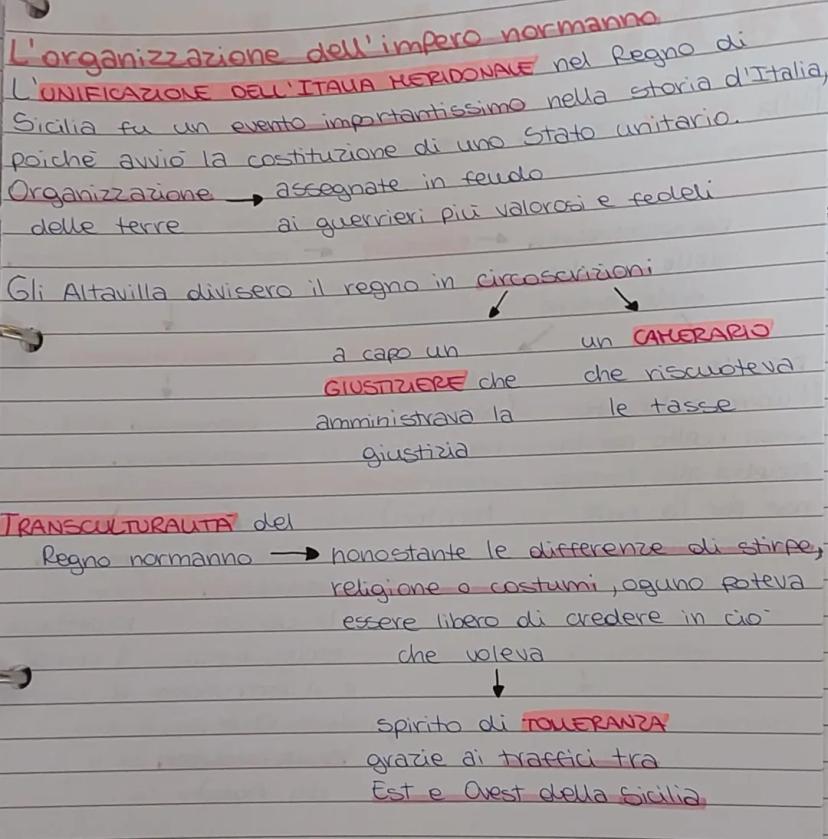 L'organizzazione dell'impero normanno
L'UNIFICAZIONE DELL'ITALIA MERIDONALE nel Regno di
Sicilia fu un evento importantissimo nella storia d'Italia,
poiché avviò la costituzione di uno Stato unitario.
Organizzazione → assegnate in feudo
delle terre ai guerrieri più valorosi e fedeli
Gli Altavilla divisero il regno in circoscrizioni
↙ ↘
a capo un un CAMERARIO
GIUSTIZIERE che che riscuoteva
amministrava la le tasse
giustizia
TRANSCULTURALITÀ del
Regno normanno → nonostante le differenze di stirpe,
religione o costumi, oguno poteva
essere libero di credere in ciò
che voleva
↓
spirito di TOLLERANZA
grazie ai traffici tra
Est e Ovest della Sicilia